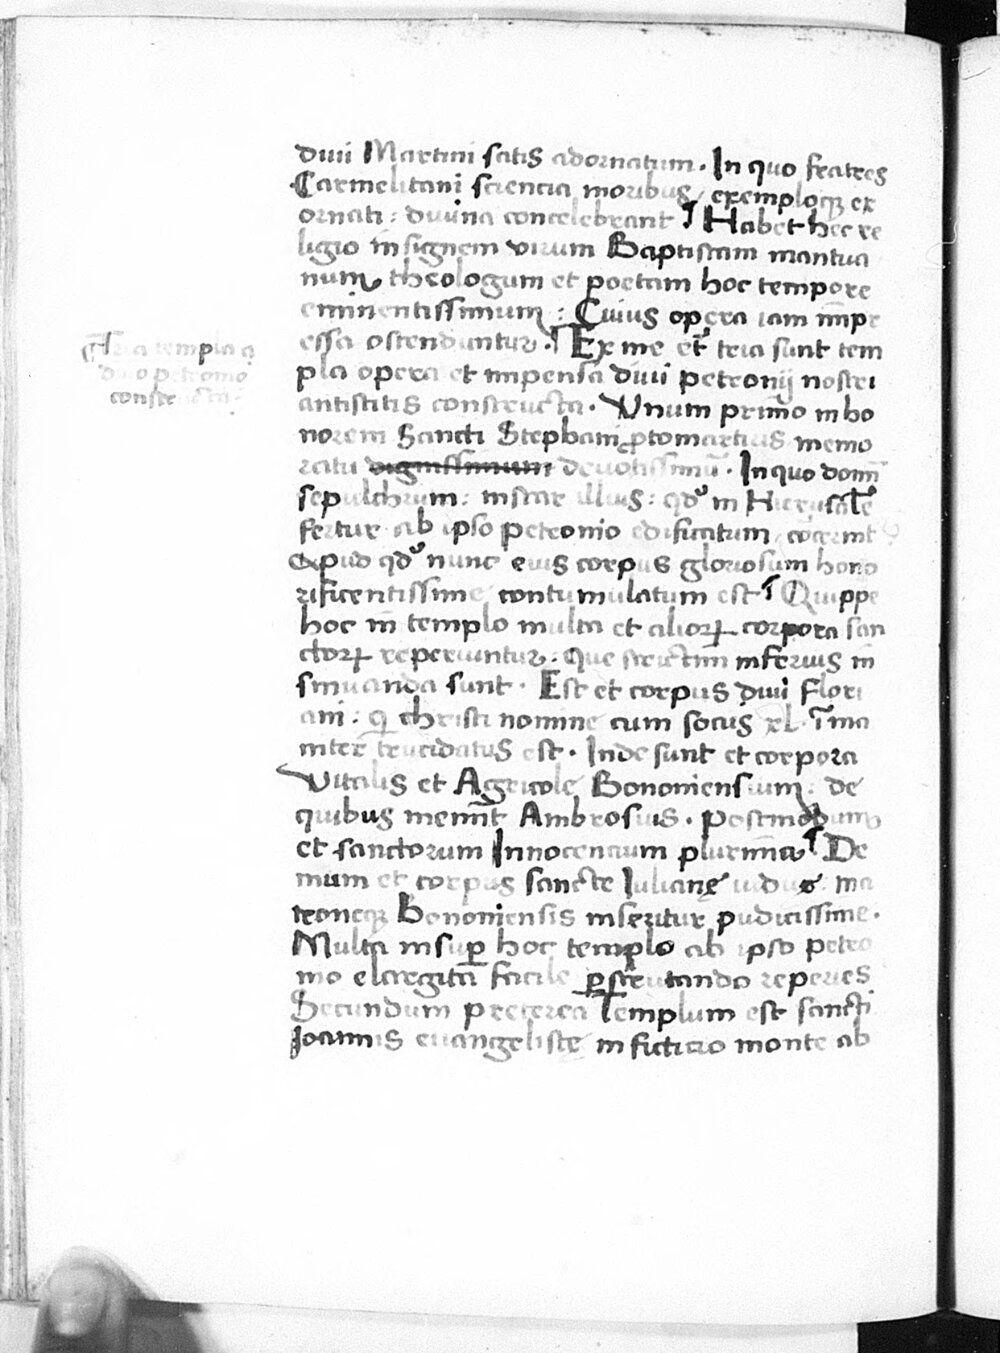 diuii Martini satis adornatum. In quo fratres
Carmelitani sciencia moribus, exemploqꝫ ex
ornati: diuina concelebrant ¶ Habet hec re
ligio insignem virum Baptistam mantua
num, theologum et poetam hoc tempore
eminentissimum: Cuius opera iam im̄pr
essa ostenduntur. ¶ Ex me et͛ tria sunt tem
pla opera et impensa diuii petronij nostri
antistitis constructa. Vnum primo in ho
norem Sancti Stephani ꝓtomartiris memo
ratu dignissimum deuotissimū. In quo domī
sepulchrum: instar illius: qd͛ in Hierusalē
fertur ab ipso petronio edificatum,
Apud qd͛ nunc eius corpus gloriosum hono
rificentissime contumulatum est ¶ Quippe
hoc in̄ templo multa et alioꝝ corpora san
ctoꝝ reperiuntur. Que strictim inferius in̄
sinuanda sunt. Est et corpus diui flori
ani: qͥ christi nomine cum sociis xl. ī ma
nter̄ trucidatus est. Inde sunt et corpora
Vitalis et Agricole Bononiensium: de
quibus memīt Ambrosius. Postmodum
et sanctorum Innocencium plurim̄a ¶ De
mum et corpus sancte Iulianę uidue: ma
troneqꝫ Bononiensis inseritur pudicissime.
Multa insuꝑ hoc templo ab ipso petro
nio elargita facile ꝑscrutando reperies
Secundum preterea Templum est sancti
Joannis euangeliste in ficticio monte ab
¶ Tria templa a
diuo petronio
constructa.